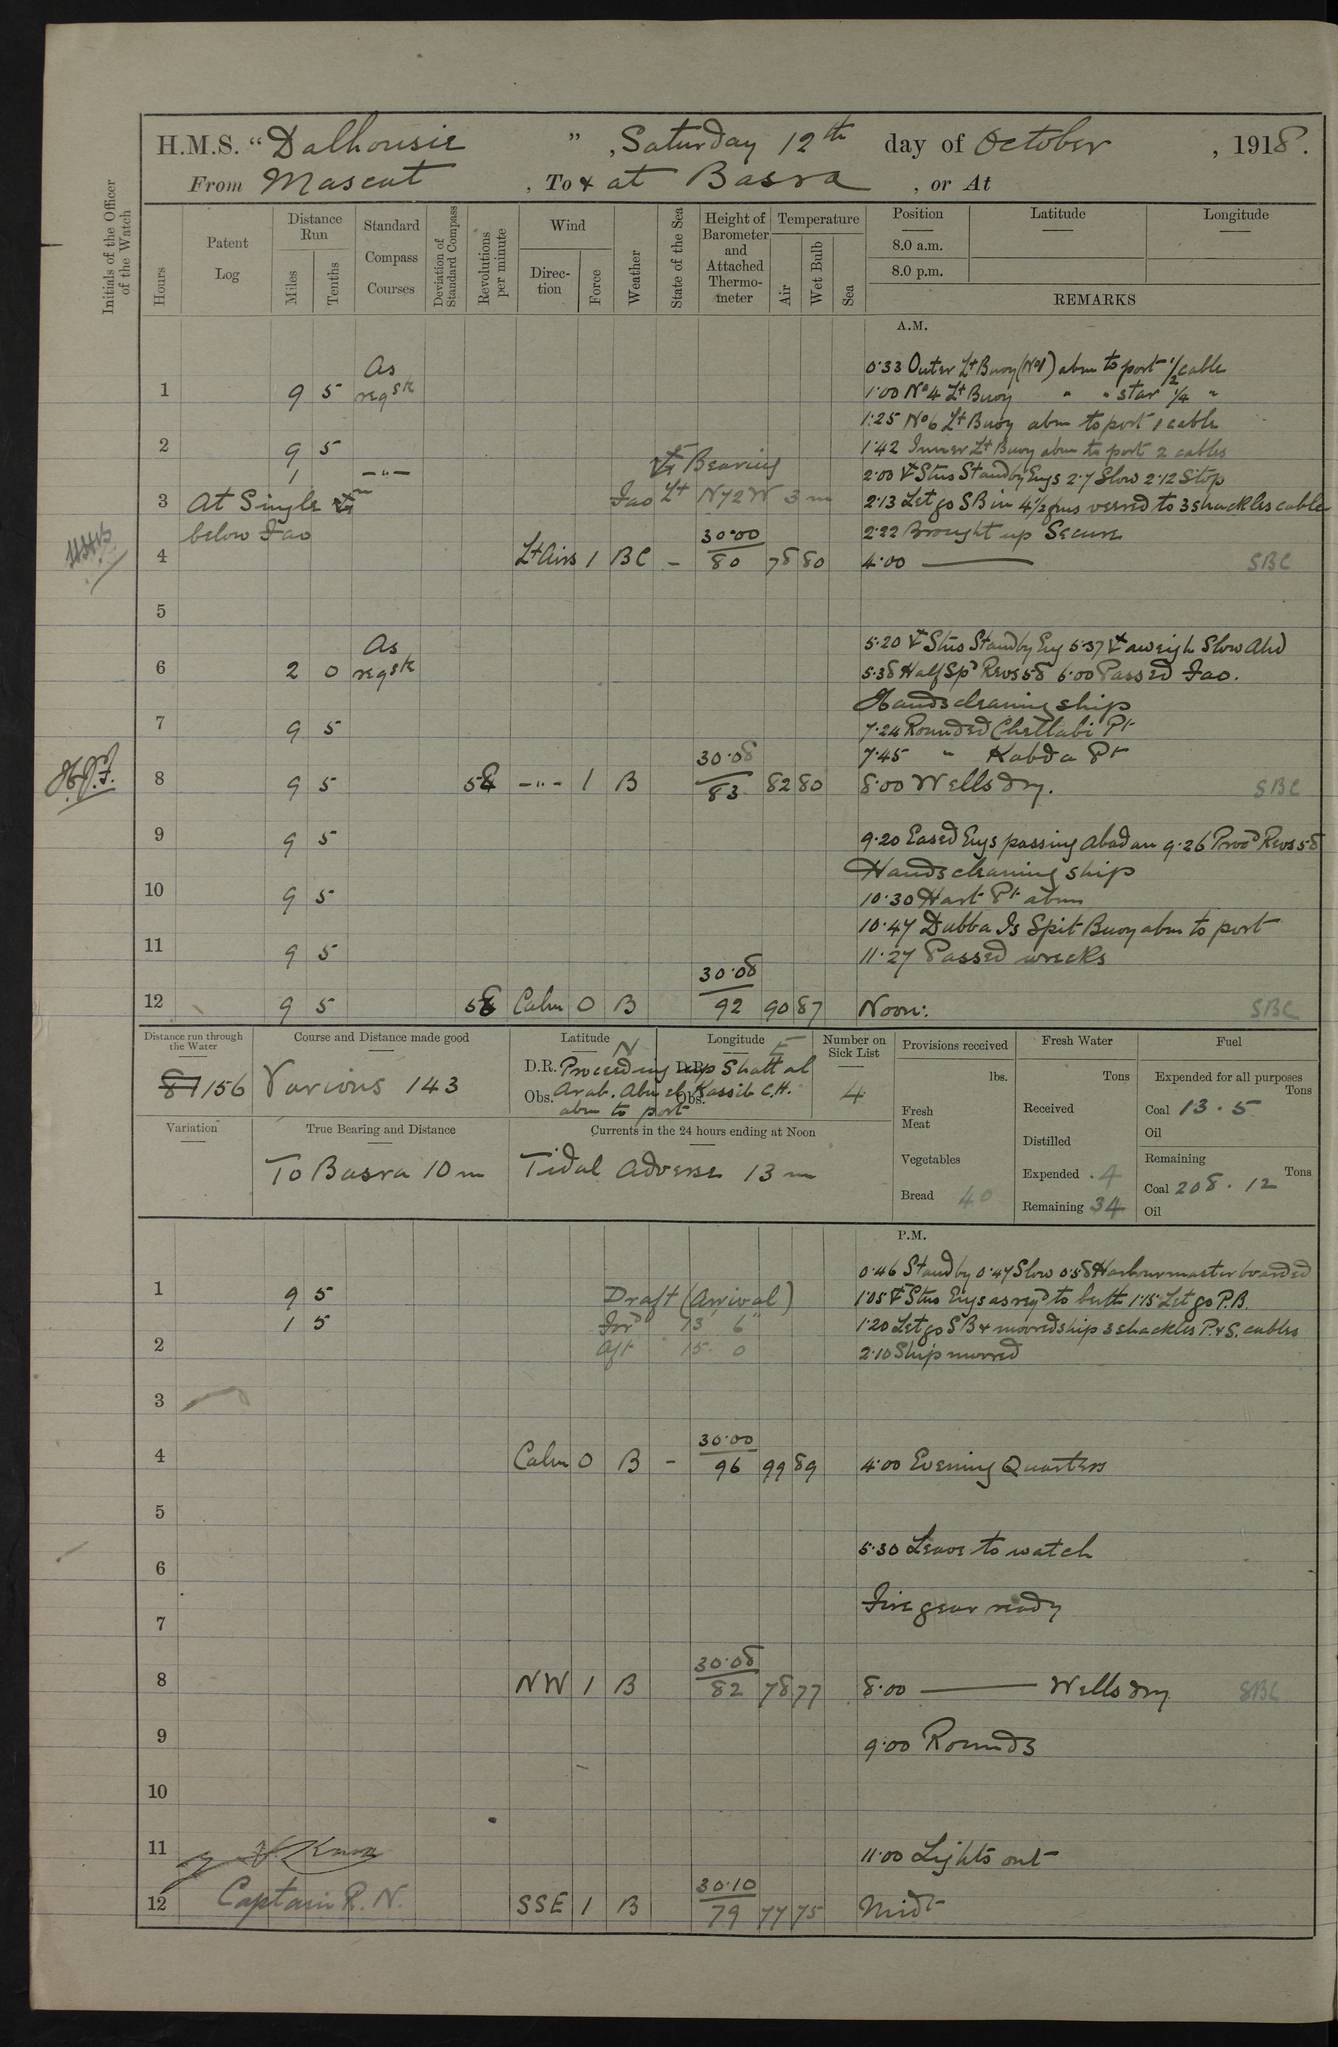 H.M.S. "Dalhousie", Saturday 12th day of October, 1918.
From Mascat, To & at Basra, or At
Initials of the Officer of the Watch
Hours
Patent Log
Distance Run
Miles
Tenths
Standard Compass Courses
Deviation of Standard Compass
Revolutions per minute
Wind
Direction
Force
Weather
State of the Sea
Height of Barometer and Attached Thermometer
Temperature
Air
Wet Bulb
Sea
Position
Latitude
Longitude
8.0 a.m.
8.0 p.m.
REMARKS
A.M.
0.33 Outer Lt Buoy (No1) abm to port 1/2 cable
1 9 5 As reqd 1.00 No 4 Lt Buoy " " star 1/4 "
1.25 No 6 Lt Buoy abm to port 1 cable
2 9 5 1.42 Inner Lt Buoy abm to port 2 cables
1 -"- Bearing 2.00 Stns Standby Engs 2.7 Slow 2.12 Stop
3 At Single Fao Lt N72W 3m 2.13 Let go SB in 4 1/2 fms veered to 3 shackles cable
below Fao 30.00 2.22 Brought up Secure
4 Lt Airs 1 BC - 80 78 80 4.00 SBC
5
As 5.20 Stns Standby Eng 5.37 aweigh Slow Ahd
6 2 0 reqd 5.38 Half Spd Revs 58 6.00 Passed Fao.
Hands cleaning ship
7 9 5 7.24 Rounded Chettabi Pt
30.08 7.45 " Kabda Pt
8 9 5 58 -"- 1 B 83 82 80 8.00 Wells dry. SBC
9 9 5 9.20 Eased Engs passing Abadan 9.26 Procd Revs 58
Hands cleaning ship
10 9 5 10.30 Hart Pt abm
10.47 Dubba Is Spit Buoy abm to port
11 9 5 11.27 Passed wrecks
30.08
12 9 5 58 Calm 0 B 92 90 87 Noon: SBC
Distance run through the Water
156
Course and Distance made good
Various 143
Latitude N
Longitude E
D.R. Proceeding up Shatt al
Obs. Arab. Abu el Kassib C.H.
abm to port
Number on Sick List
4
Provisions received
lbs.
Fresh Meat
Vegetables
Bread 40
Fresh Water
Tons
Received
Distilled
Expended .4
Remaining 34
Fuel
Expended for all purposes
Tons
Coal 13.5
Oil
Remaining
Tons
Coal 208.12
Oil
Variation
True Bearing and Distance
To Basra 10m
Currents in the 24 hours ending at Noon
Tidal adverse 13m
P.M.
0.46 Standby 0.47 Slow 0.58 Harbourmaster boarded
1 9 5 Draft (Arrival) 1.05 Stns Engs as reqd to berth 1.15 Let go P.B.
1 5 Ford 13' 6" 1.20 Let go SB & moored ship 3 shackles P.&S. cables
2 Aft 15 0 2.10 Ship moored
3
30.00
4 Calm 0 B - 96 99 89 4.00 Evening Quarters
5
5.30 Leave to watch
6
Fire gear ready
7
30.08
8 NW 1 B 82 78 77 8.00 Wells dry SBC
9 9.00 Rounds
10
11 11.00 Lights out
30.10
12 Captain R.N. SSE 1 B 79 77 75 Midt